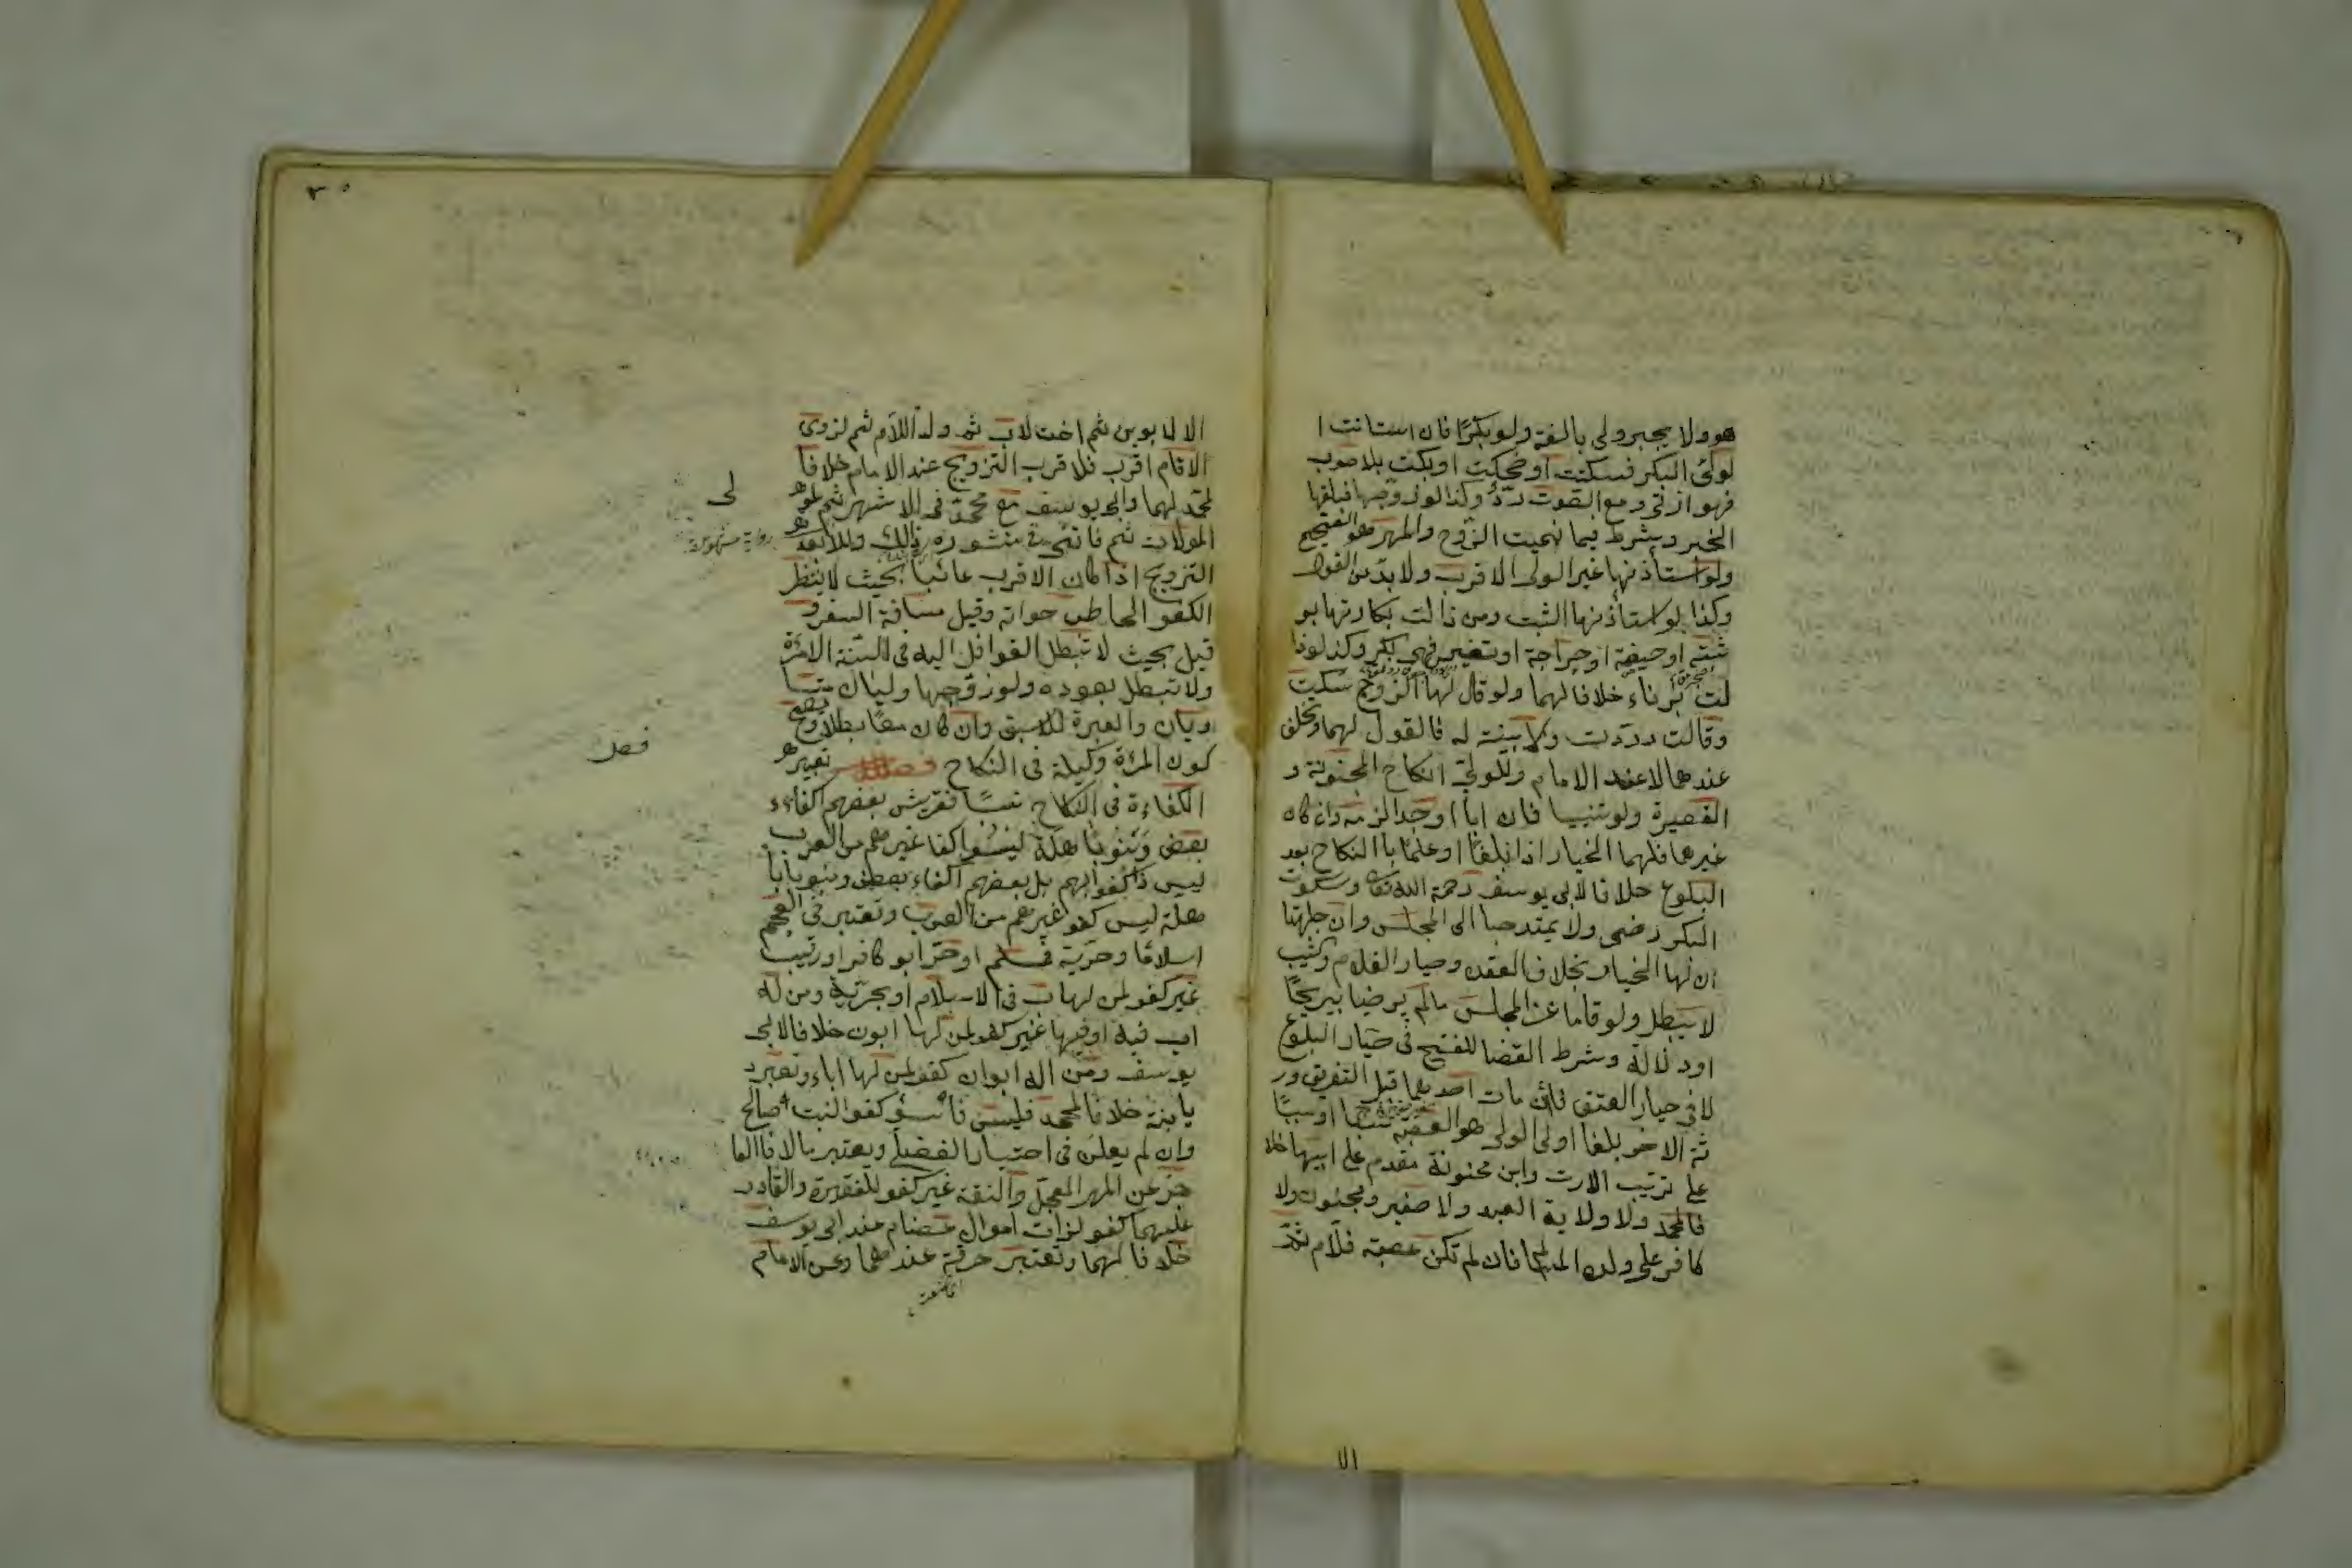 هو ولا يجبر ولى بالغة ولو بكرًا فان استانت ا
لولىّ البكر فسكتت او ضحكت او بكت بلا صوت
فهو اذن و مع الصوت ردّ وكذا لو زوّجها فبلغها
الخبر ويشرط فيما تسميت الزوج والمهر هو الصحيح
ولو استأذنها غير الولى الاقرب ولا بدّ من القول
وكذا لو استأذنها الثيب ومن ذالت بكارتها بو
ثبته او حيضة او جراحة او تعنيس فهى بكر وكذا لو زا
لت بزناء خلافا لهما ولو قال لها الزوج سكت
وقالت رددت ولا بينة له فالقول لها وتحلف
عندهما لا عند الامام وللولىّ انكاح المجنونة و
الصغيرة ولو ثيبا فان ابا او جدا لزم وان كان
غيرهما فلهما الخيار اذا بلغا او علما با النكاح بعد
البلوغ خلافا لابى يوسف رحمة الله تعالى وسكوت
البكر رضى ولا يمتد حيا الى المجلس وان جهلتا
ان لها الخيار بخلاف العقد وخيار الغلام وثيب
لا يبطل ولو قاما عن المجلس مالم يرضيا بيريحًا
او دلالة وشرط القضا للفسخ فى خيار البلوغ
لا فى خيار العتق فان مات احدهما قبل التفريق ور
ثة الاخر بلغا او لا الولى هو العصبة نسبا او سببًا
على ترتيب الارث وابن مجنونة مقدم على ابيها خلا
فا لمحمد ولا ولاية العبد ولا صغير ومجنون ولا
كافر على ولده المسلم فان لم تكن عصبة فلام ثمّ
الا
٣٠
الا لابوين ثم اخت لاب ثم ولد اللام ثم لزوى
الاقام اقرب فلاقرب التزويج عند الامام خلافا
لمحمد لهما وابى يوسف مع محمد فى الاشهر ثم لمو
المولات ثم قاضى فى منشوره ذالك وللابعد
التزويج اذا كان الاقرب غائبا بحيث لا ينتظر
الكفو الخاطب جوابه وقيل مسافة السفر و
قيل بحيث لا تبطل القوافل اليه فى السنة الامرّة
ولا تبطل بعوده ولو زوّجها وليان متسا
ويان والعبرة للاسبق وان كان معًا بطلا ويصح
كون المرأة وكيلة فى النكاح فصل تعتبر
الكفاءة فى النكاح نسبًا فقريش بعضهم اكفاء
بعض وبنو باهلة ليسوا كفا غيرهم من العرب
ليس ذا كفوا لهم بل بعضهم اكفاء بعض وبنو با
هلة ليس كفو غيرهم من العرب وتعتبر فى العجم
اسلامًا وحريّة فمسلم او حرّ ابو كافر او رتيب
غير كفو لمن لها اب فى الاسلام او بحريّة ومن له
اب فيه او فيها غير كفو لمن لها ابون خلافا لابى
يوسف ومن اله ابوان كفو لمن لها اباء وتعتبر د
يانة خلافا لمحمد فليس فاسق كفو البنت صالح
وان لم يعلن فى اختيار الفضلى ويعتبر مالا فالعا
جز عن المهر المعجّل والنقة غير كفو للفقيرة والقادر
عليهما كفو لزات اموال عضام عند ابى يوسف
خلافا لهما وتعتبر حرفة عندهما وعن الامام
رواية مشهورة
فصل